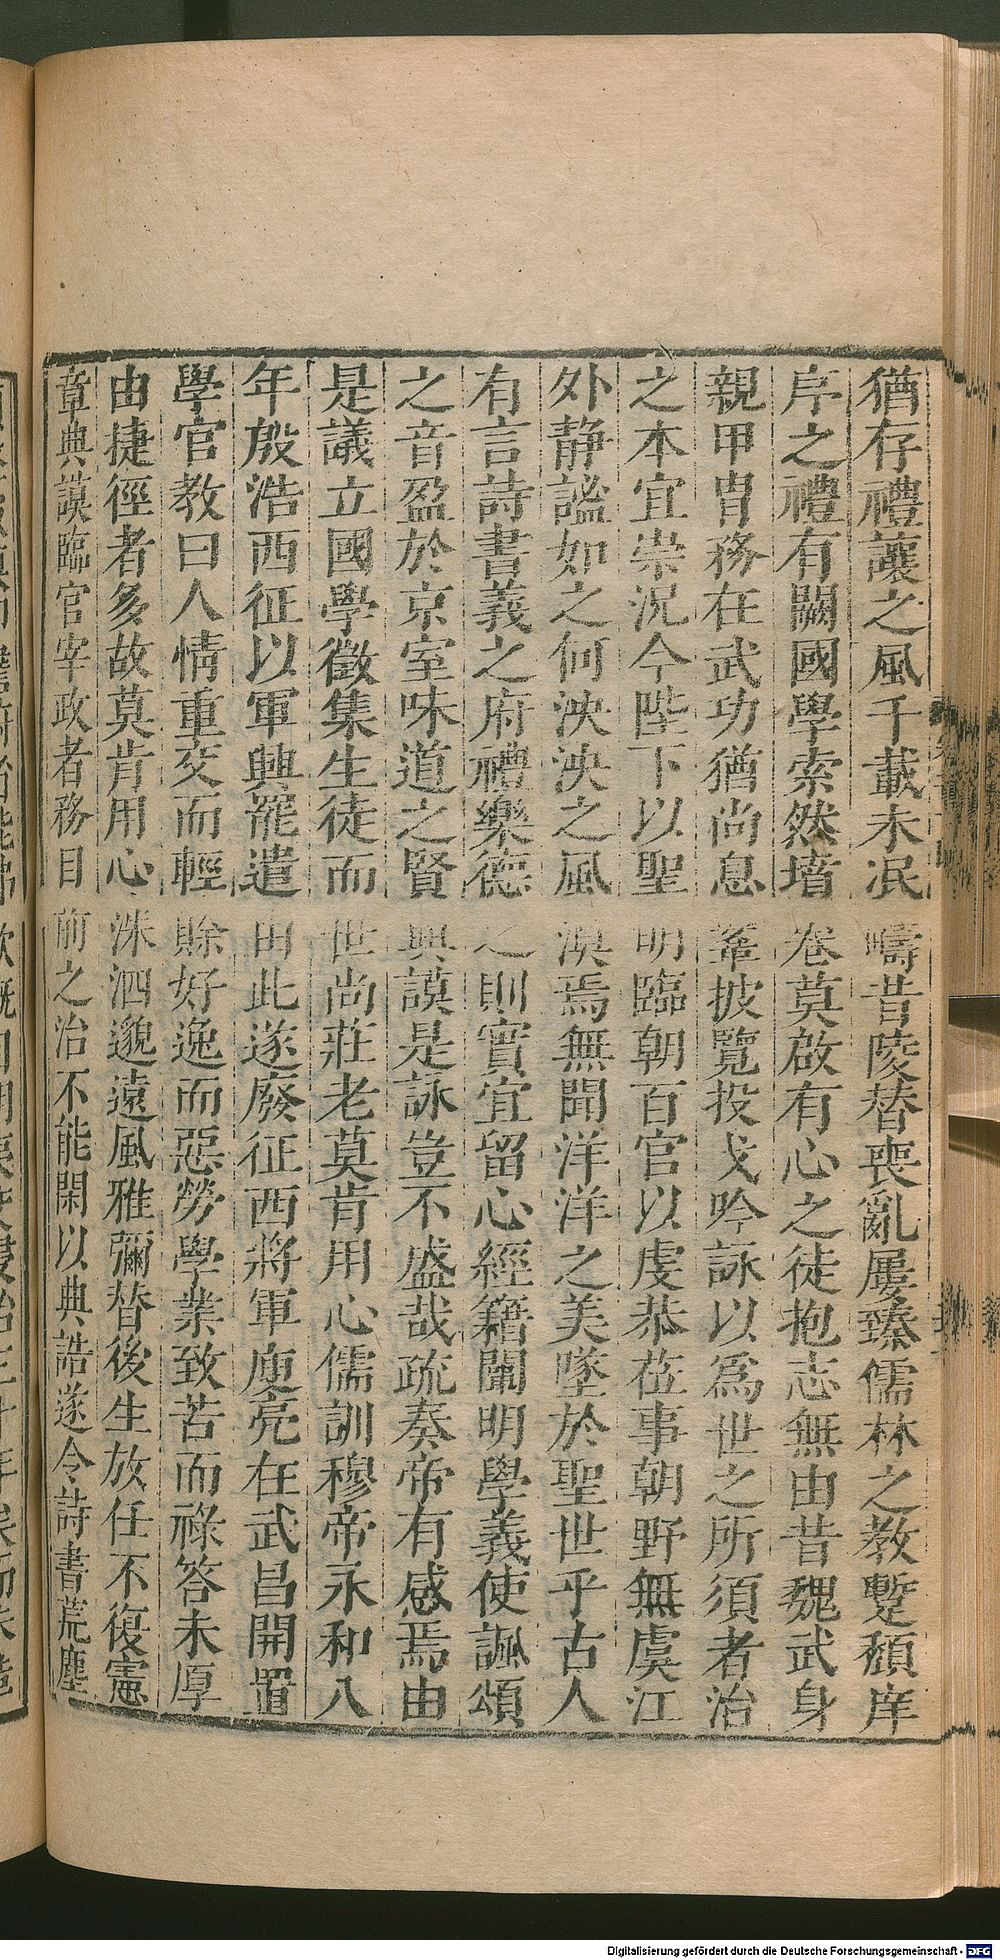 猶存禮讓之風千載未泯疇昔陵替喪亂屢臻儒林之教蹔頹庠
序之禮有闕國學索然墳卷莫啟有心之徒抱志無由昔魏武身
親甲胄務在武功猶尚息鞌披覽投戈吟詠以爲世之所須者治
之本宜崇况今陛下以聖明臨朝百官以虔恭莅事朝野無虞江
外静謐如之何泱泱之風漠焉無聞洋洋之美墜於聖世乎古人
有言詩書義之府禮樂德之則實宜留心經籍闡明學義使諷頌
之音盈於京室味道之賢典謨是詠豈不盛哉疏奏帝有感焉由
是議立國學徵集生徒而世尚莊老莫肯用心儒訓穆帝永和八
年殷浩西征以軍興罷遣由此遂廢征西將軍庾亮在武昌開置
學官教曰人情重交而輕賖好逸而惡勞學業致苦而祿答未厚
由捷徑者多故莫肯用心洙泗邈遠風雅彌替後生放任不復憲
章典謨臨官宰政者務目前之治不能閑以典誥遂令詩書荒塵
Digitalisierung gefördert durch die Deutsche Forschungsgemeinschaft - DFG